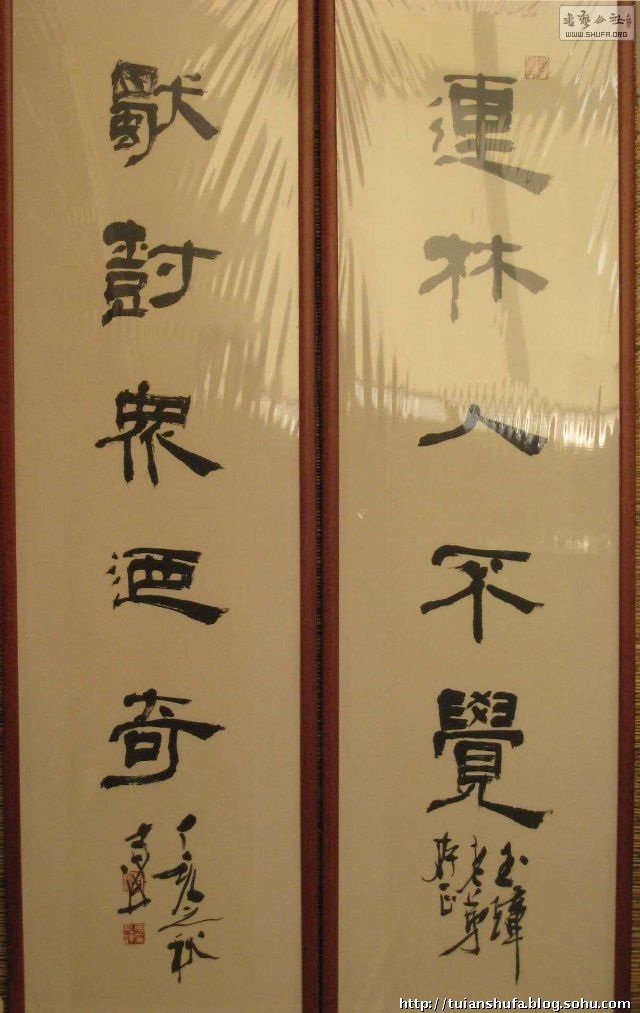 書藝公社
WWW.SHUFA.ORG
連林人不覺
獨樹衆迺奇
丁亥之秋
http://tuianshufa.blog.sohu.com